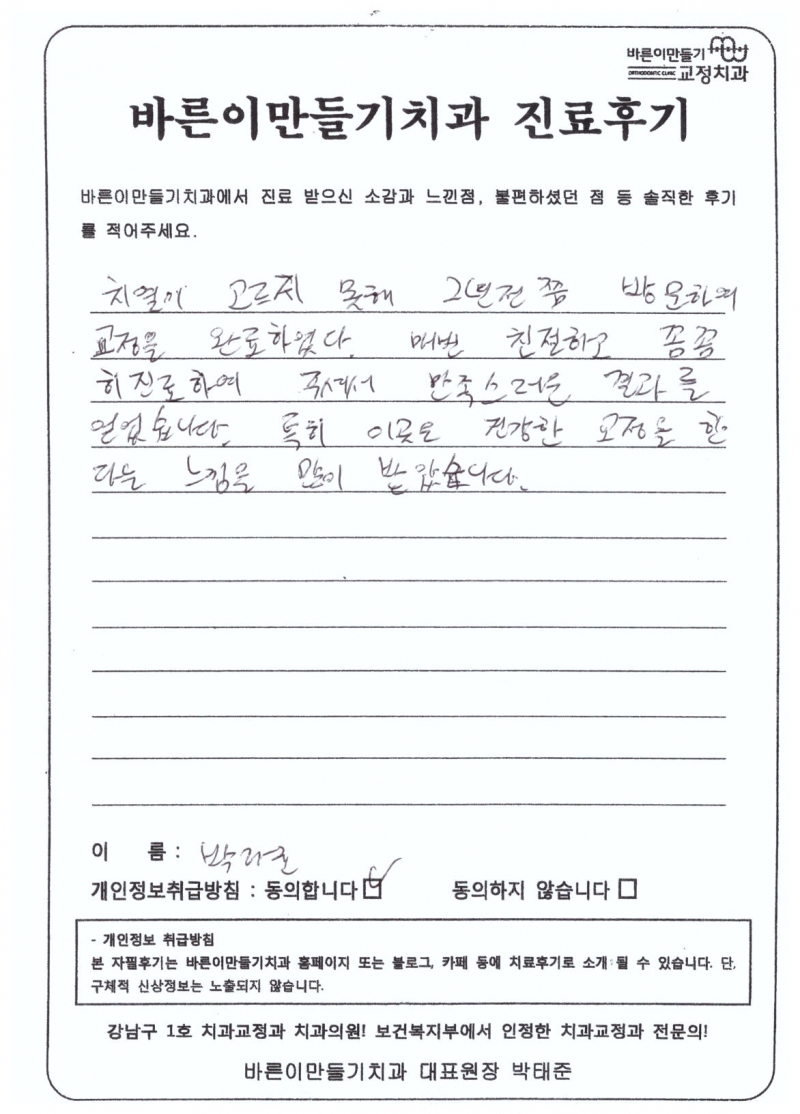 바른이만들기
ORTHODONTIC CLINIC 교정치과
바른이만들기치과 진료후기
바른이만들기치과에서 진료 받으신 소감과 느낀점, 불편하셨던 점 등 솔직한 후기
를 적어주세요.
치열이 고르지 못해 2년전쯤 방문하여
교정을 완료하였다. 매번 친절하고 꼼꼼
히 진료하여 주셔서 만족스러운 결과를
얻었습니다. 특히 이곳은 건강한 교정을 한
다는 느낌을 많이 받았습니다.
이 름 : 박
개인정보취급방침 : 동의합니다 동의하지 않습니다
- 개인정보 취급방침
본 자필후기는 바른이만들기치과 홈페이지 또는 블로그, 카페 등에 치료후기로 소개 될 수 있습니다. 단,
구체적 신상정보는 노출되지 않습니다.
강남구 1호 치과교정과 치과의원! 보건복지부에서 인정한 치과교정과 전문의!
바른이만들기치과 대표원장 박태준